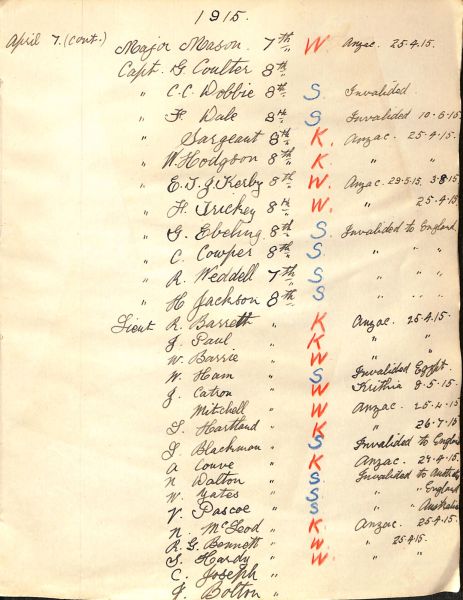 1915.
April 7. (cont.) Major Mason. 7th W. Anzac 25.4.15.
Capt. G. Coulter 8th
" C.C. Dobbie 8th S. Invalided.
" F Dale 8th S. Invalided 10.6.15
" Sargeant 8th K. Anzac. 25.4.15.
" W. Hodgson 8th K. " "
" E.T.G. Kerby 8th W. Anzac. 29.5.15. 3.8.15
" H. Trickey 8th W. " 25.4.15
" G. Ebeling. 8th S. Invalided to England
" C. Cowper 8th S. " " "
" R. Weddell 7th S " " "
" H Jackson 8th S " " "
Lieut R. Barrett " K Anzac. 25.4.15.
J. Paul " K " "
W. Barrie " W " "
W. Ham " S Invalided Egypt.
J. Catron " W Krithia 8.5.15.
Mitchell " W Anzac 25.4.15
S. Hartland " K " 26.7.15
J. Blackman " S Invalided to England
A Couve " K Anzac. 24.4.15.
N Dalton " S Invalided to
W. Yates " S " " England
V. Pascoe " S " " Australia
N. McLeod " K. Anzac. 25.4.15.
R.G. Bennett " W. " 25.4.15.
S. Hardy " W " "
C. Joseph "
F. Bolton "